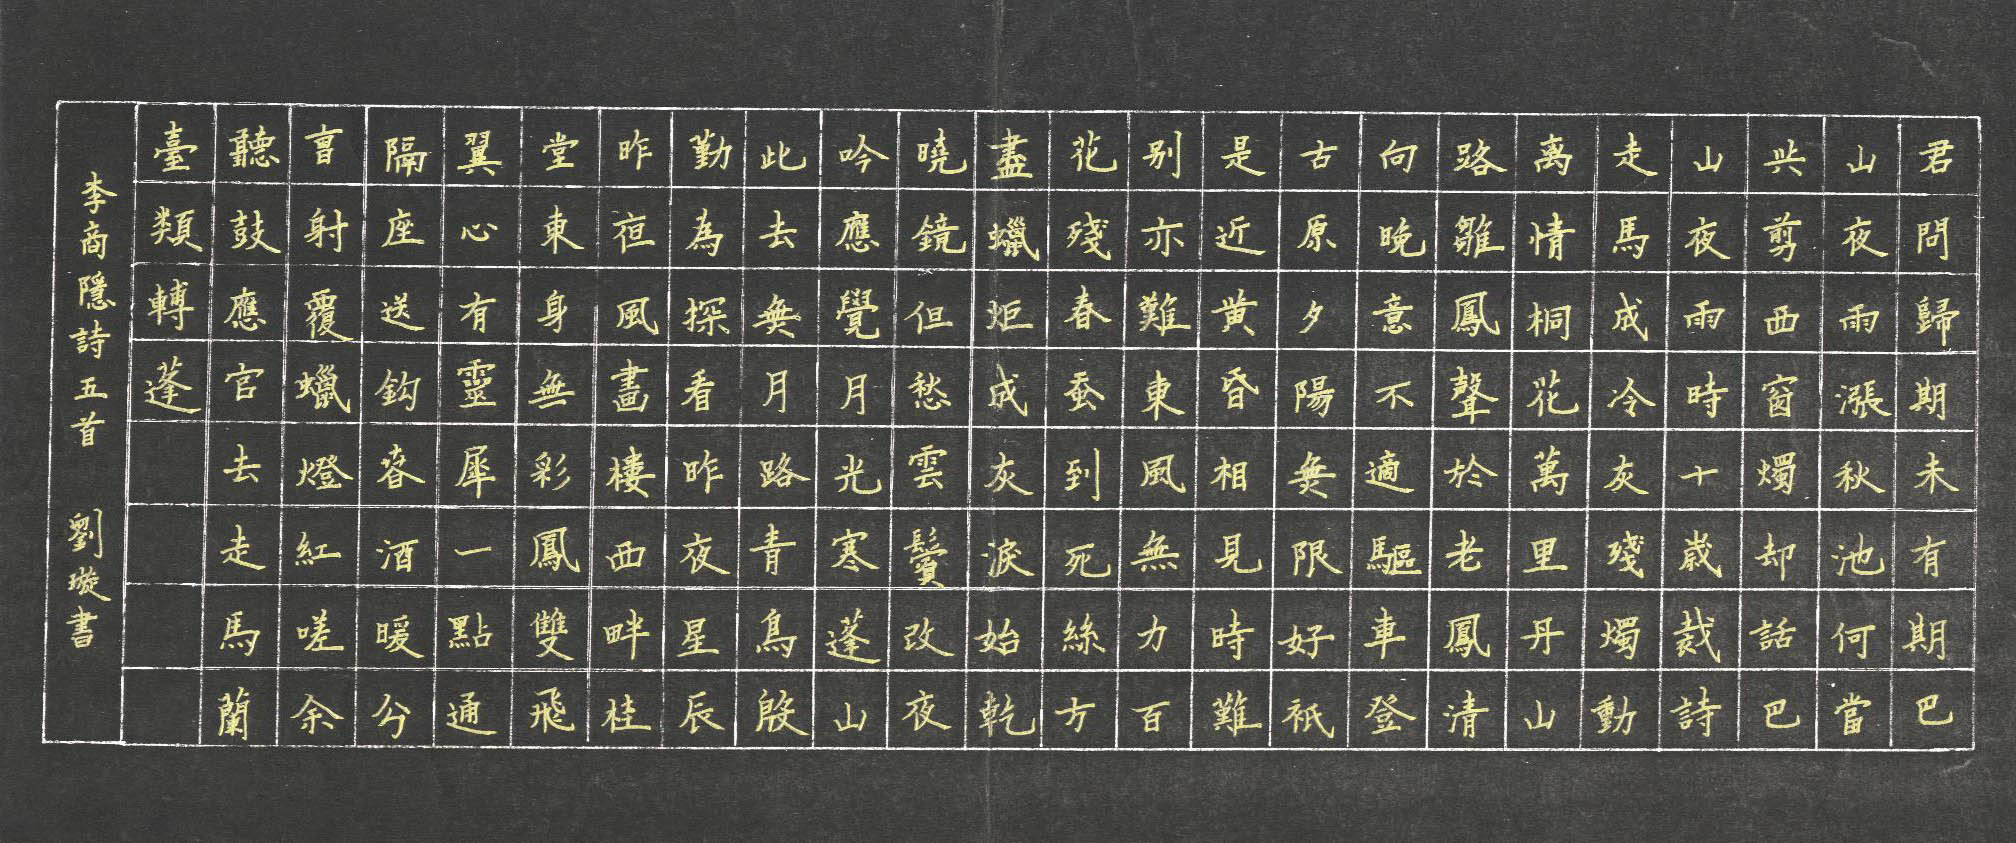 君問歸期未有期巴
山夜雨漲秋池何當
共剪西窗燭却話巴
山夜雨時十歲裁詩
走馬成冷灰殘燭動
离情桐花萬里丹山
路雛鳳聲於老鳳清
向晚意不適驅車登
古原夕陽無限好祇
是近黄昏相見時難
别亦難東風無力百
花殘春蚕到死絲方
盡蠟炬成灰淚始乾
曉鏡但愁雲鬢改夜
吟應覺月光寒蓬山
此去無月路青鳥殷
勤為探看昨夜星辰
昨亱風畫樓西畔桂
堂東身無彩鳳雙飛
翼心有靈犀一點通
隔座送鈎春酒暖分
曹射覆蠟燈紅嗟余
聽鼓應官去走馬蘭
臺類轉蓬
李商隱詩五首 劉璇書